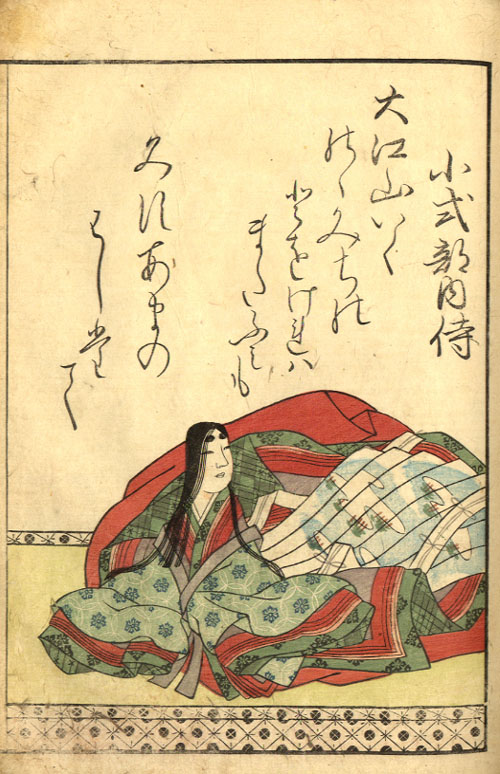 小式部内侍
大江山いく
のゝみちの
とをけれハ
またふみも
みすあまの
はしたて